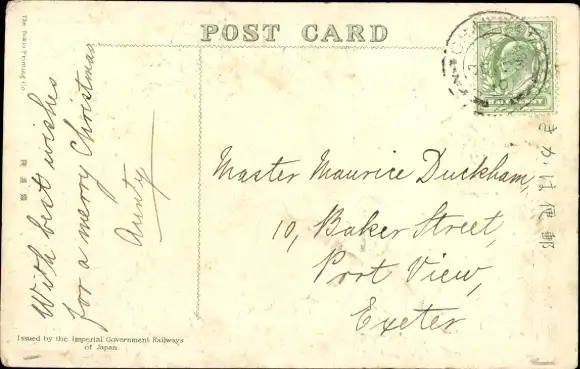 POST CARD
The Tokyo Printing Co.
With best wishes
for a merry Christmas
Aunty
Master Maurice Duckham,
10, Baker Street,
Port View,
Exeter
きかは便郵
Issued by the Imperial Government Railways
of Japan.